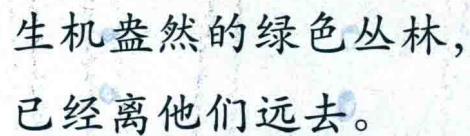 生机盎然的绿色丛林，
已经离他们远去。